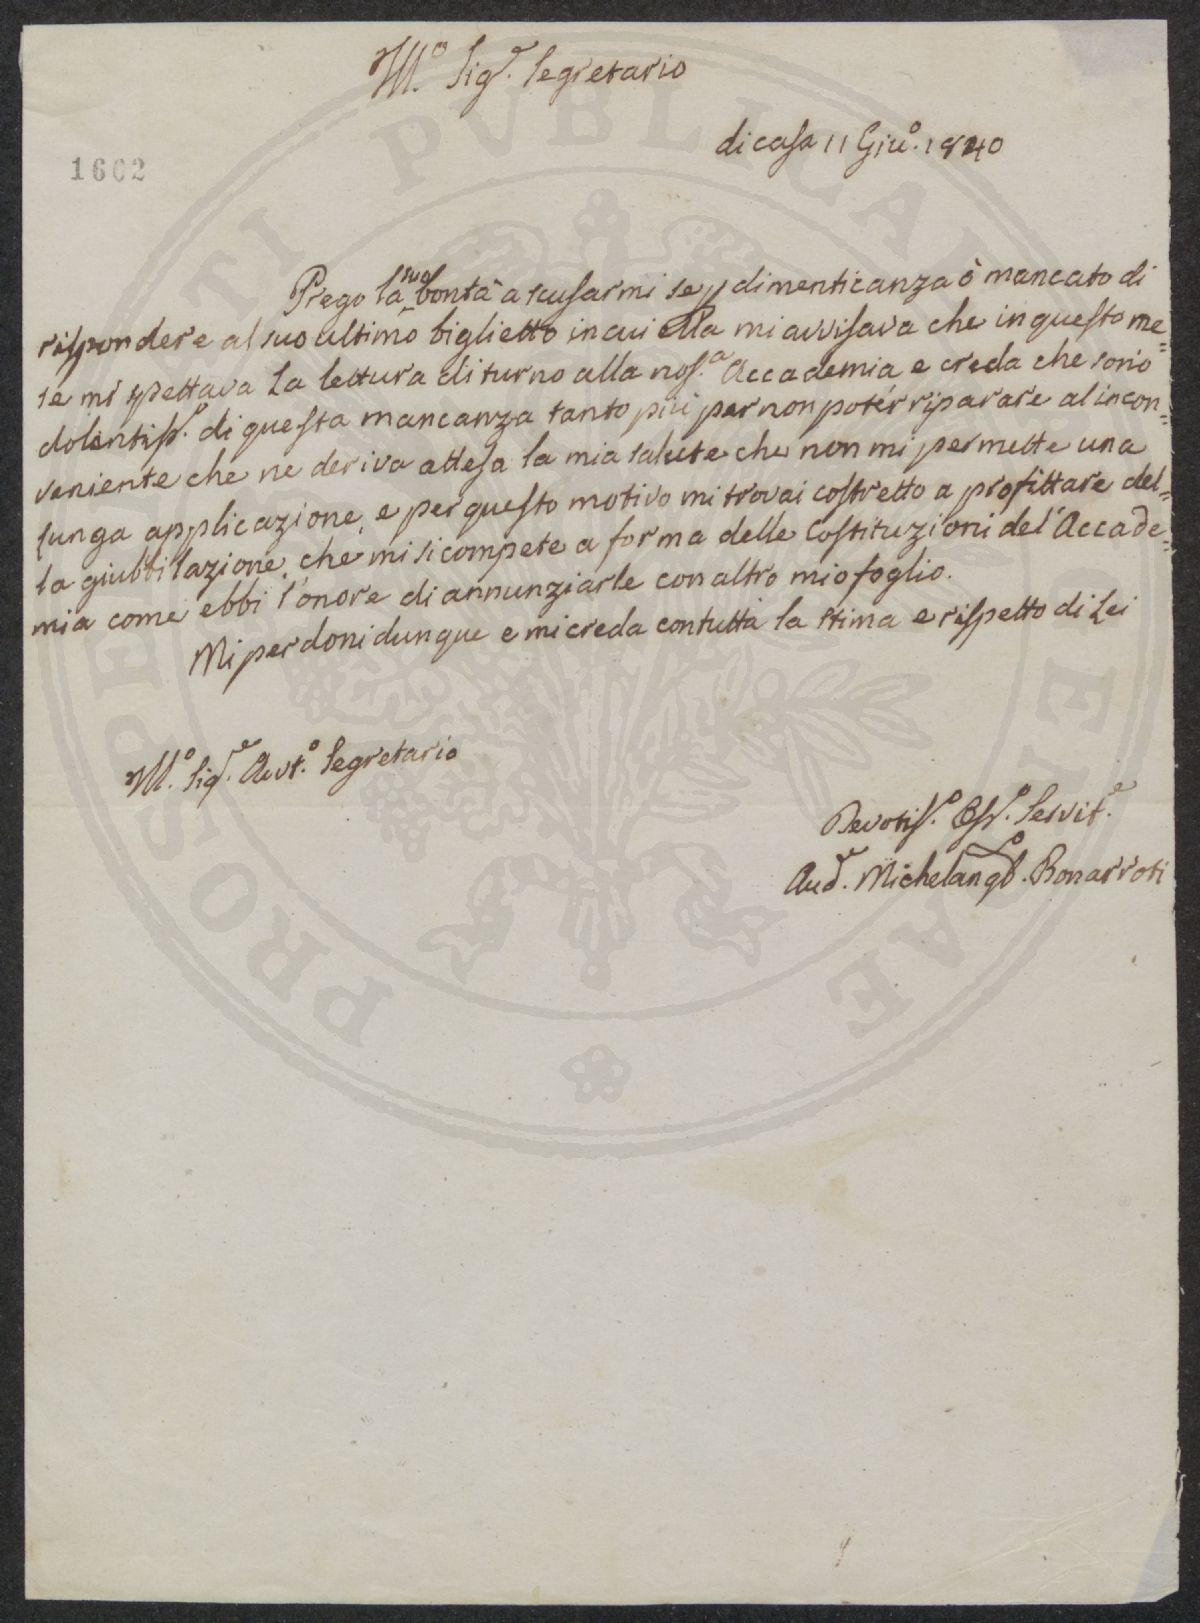 Ill.º Sig.e Segretario
di casa 11 Giu.º 1840
1602
Prego la sua bontà a scusarmi se p dimenticanza ò mancato di
rispondere al suo ultimo biglietto in cui Ella mi avvisava che in questo me=
se mi spettava la lettura di turno alla nos.a Accademia e creda che sono
dolentiss.º di questa mancanza tanto più per non potér riparare al incon=
veniente che ne deriva attesa la mia salute che non mi permette una
lunga applicazione, e per questo motivo mi trovai costretto a profittare del=
la giubbilazione, che mi si compete a forma delle Costituzioni del'Accade=
mia come ebbi l'onore di annunziarle con altro mio foglio.
Mi perdoni dunque e mi creda con tutta la stima e rispetto di Lei
Ill.º Sig.e Avv.º Segretario
Devotiss.º Oss.º Servit.e
Aud.e Michelang.º Bonarroti
PROSPERITATI PVBLICAE